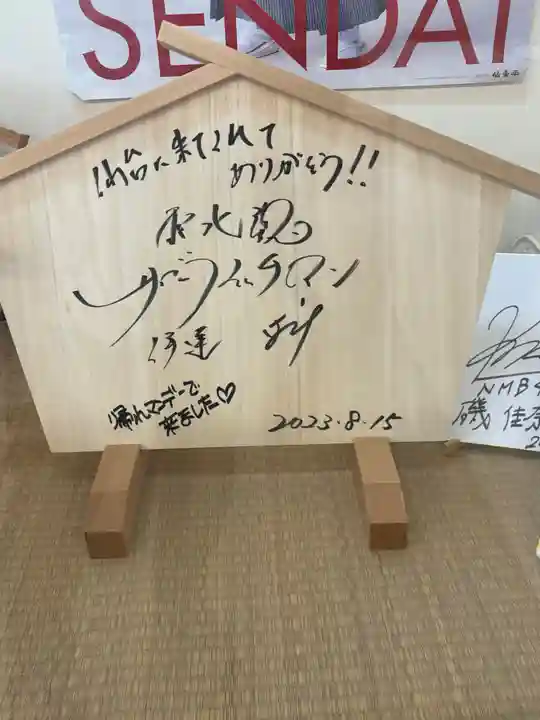 SENDAI
仙台に来てくれて
ありがとう!!
サンドウィッチマン
伊達
帰れマンデーで
来ました♡
2023.8.15
NMB4
磯 佳奈
2